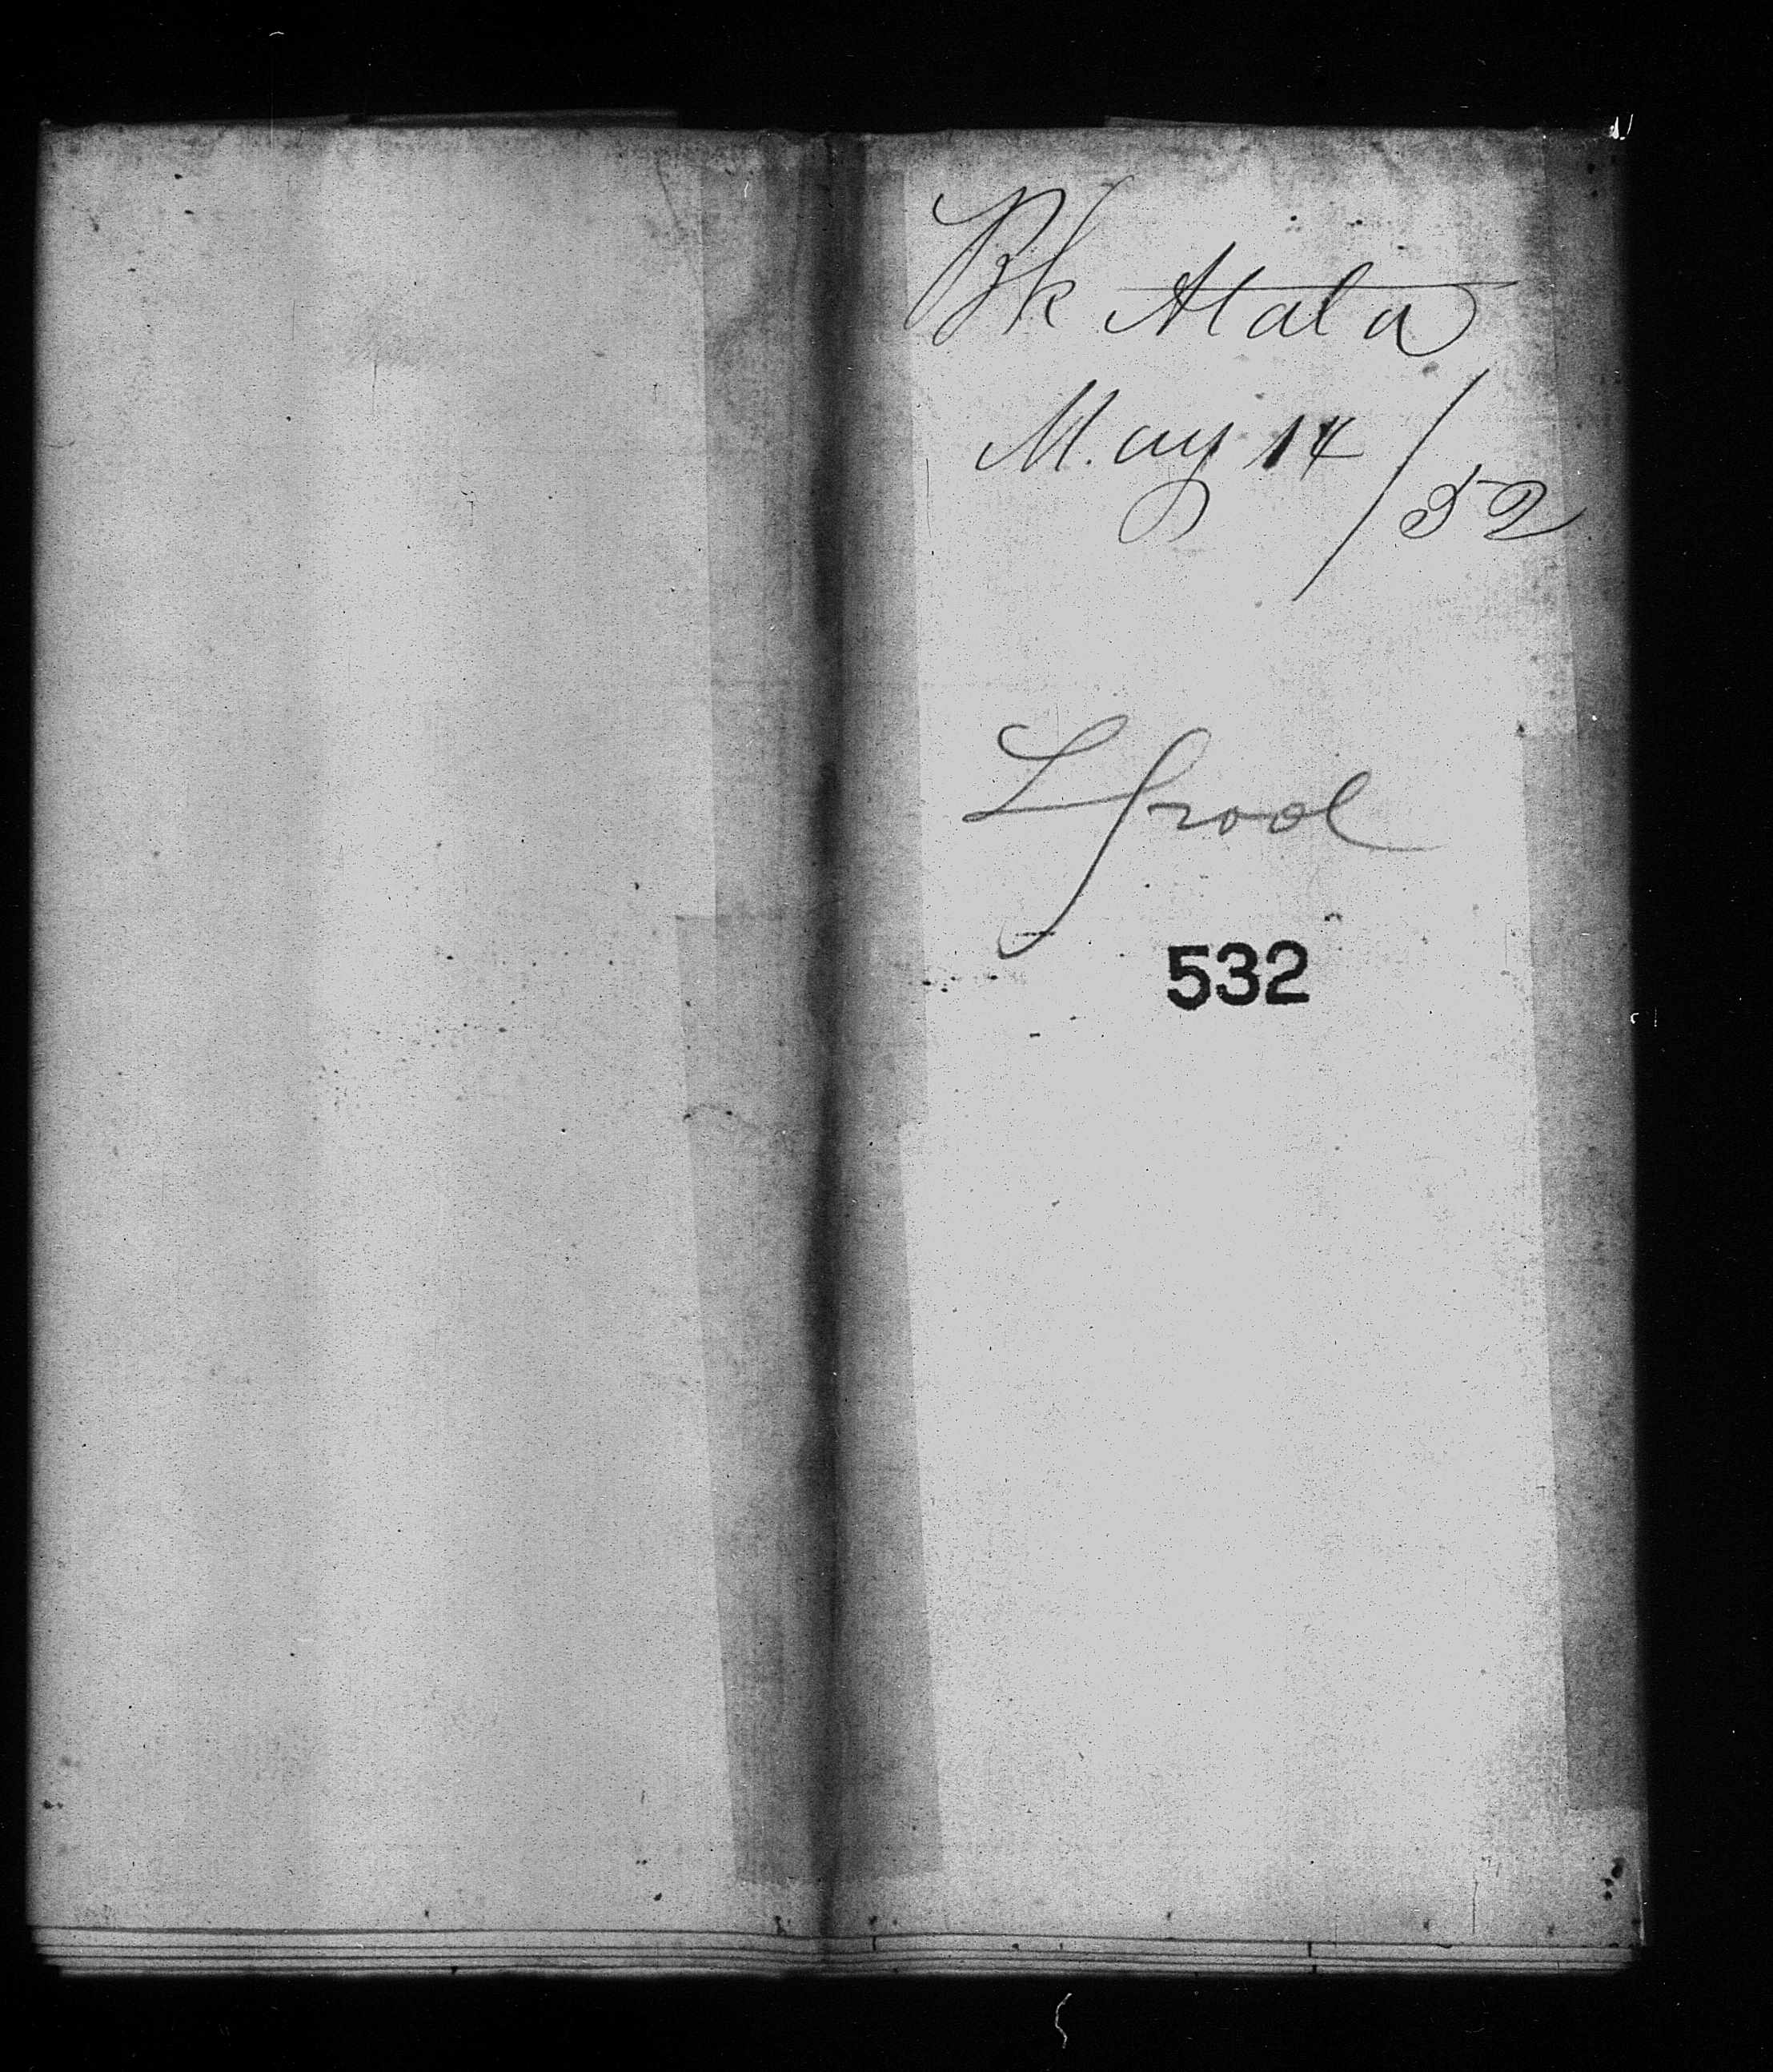 Bk Atala
May 14/52
Lpool
532